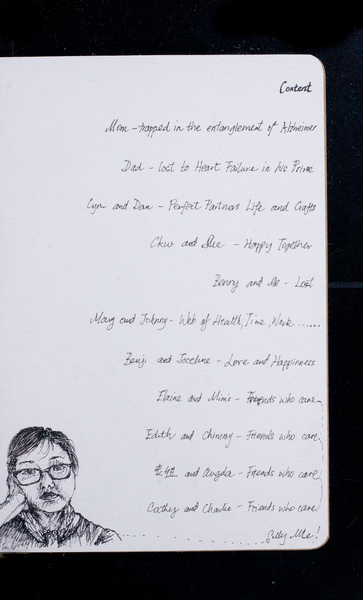 Content
Mom - trapped in the entanglement of Alzheimer
Dad - lost to Heart Failure in his Prime
Cyn and Dan - Perfect Partners Life and Crafts
Chw and Sue - Happy Together
Benny and Me - Lost
Mary and Johnny - Web of Health, Time, Work.......
Benji and Joceline - Love and Happiness
Elaine and Mimi - Friends who care
Edith and Chimmy - Friends who care
and Angela - Friends who care
Cathy and Charlie - Friends who care
Silly Me!